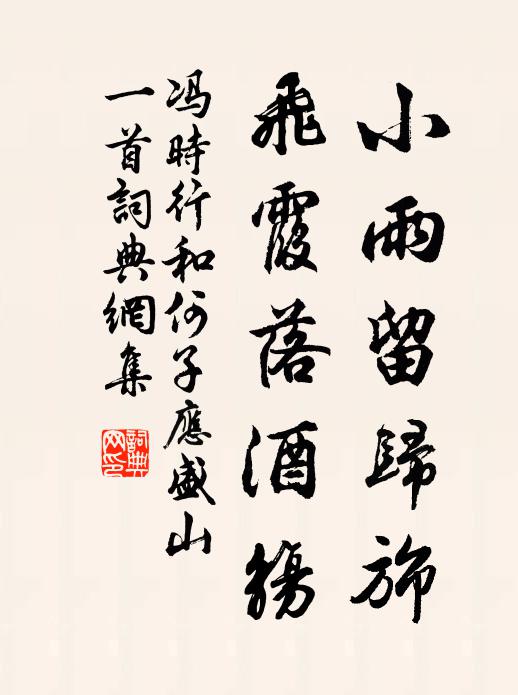 小雨留歸旆
飛霞落酒觴
冯時行和何子應盛山
一首詞典網集
詞典網印